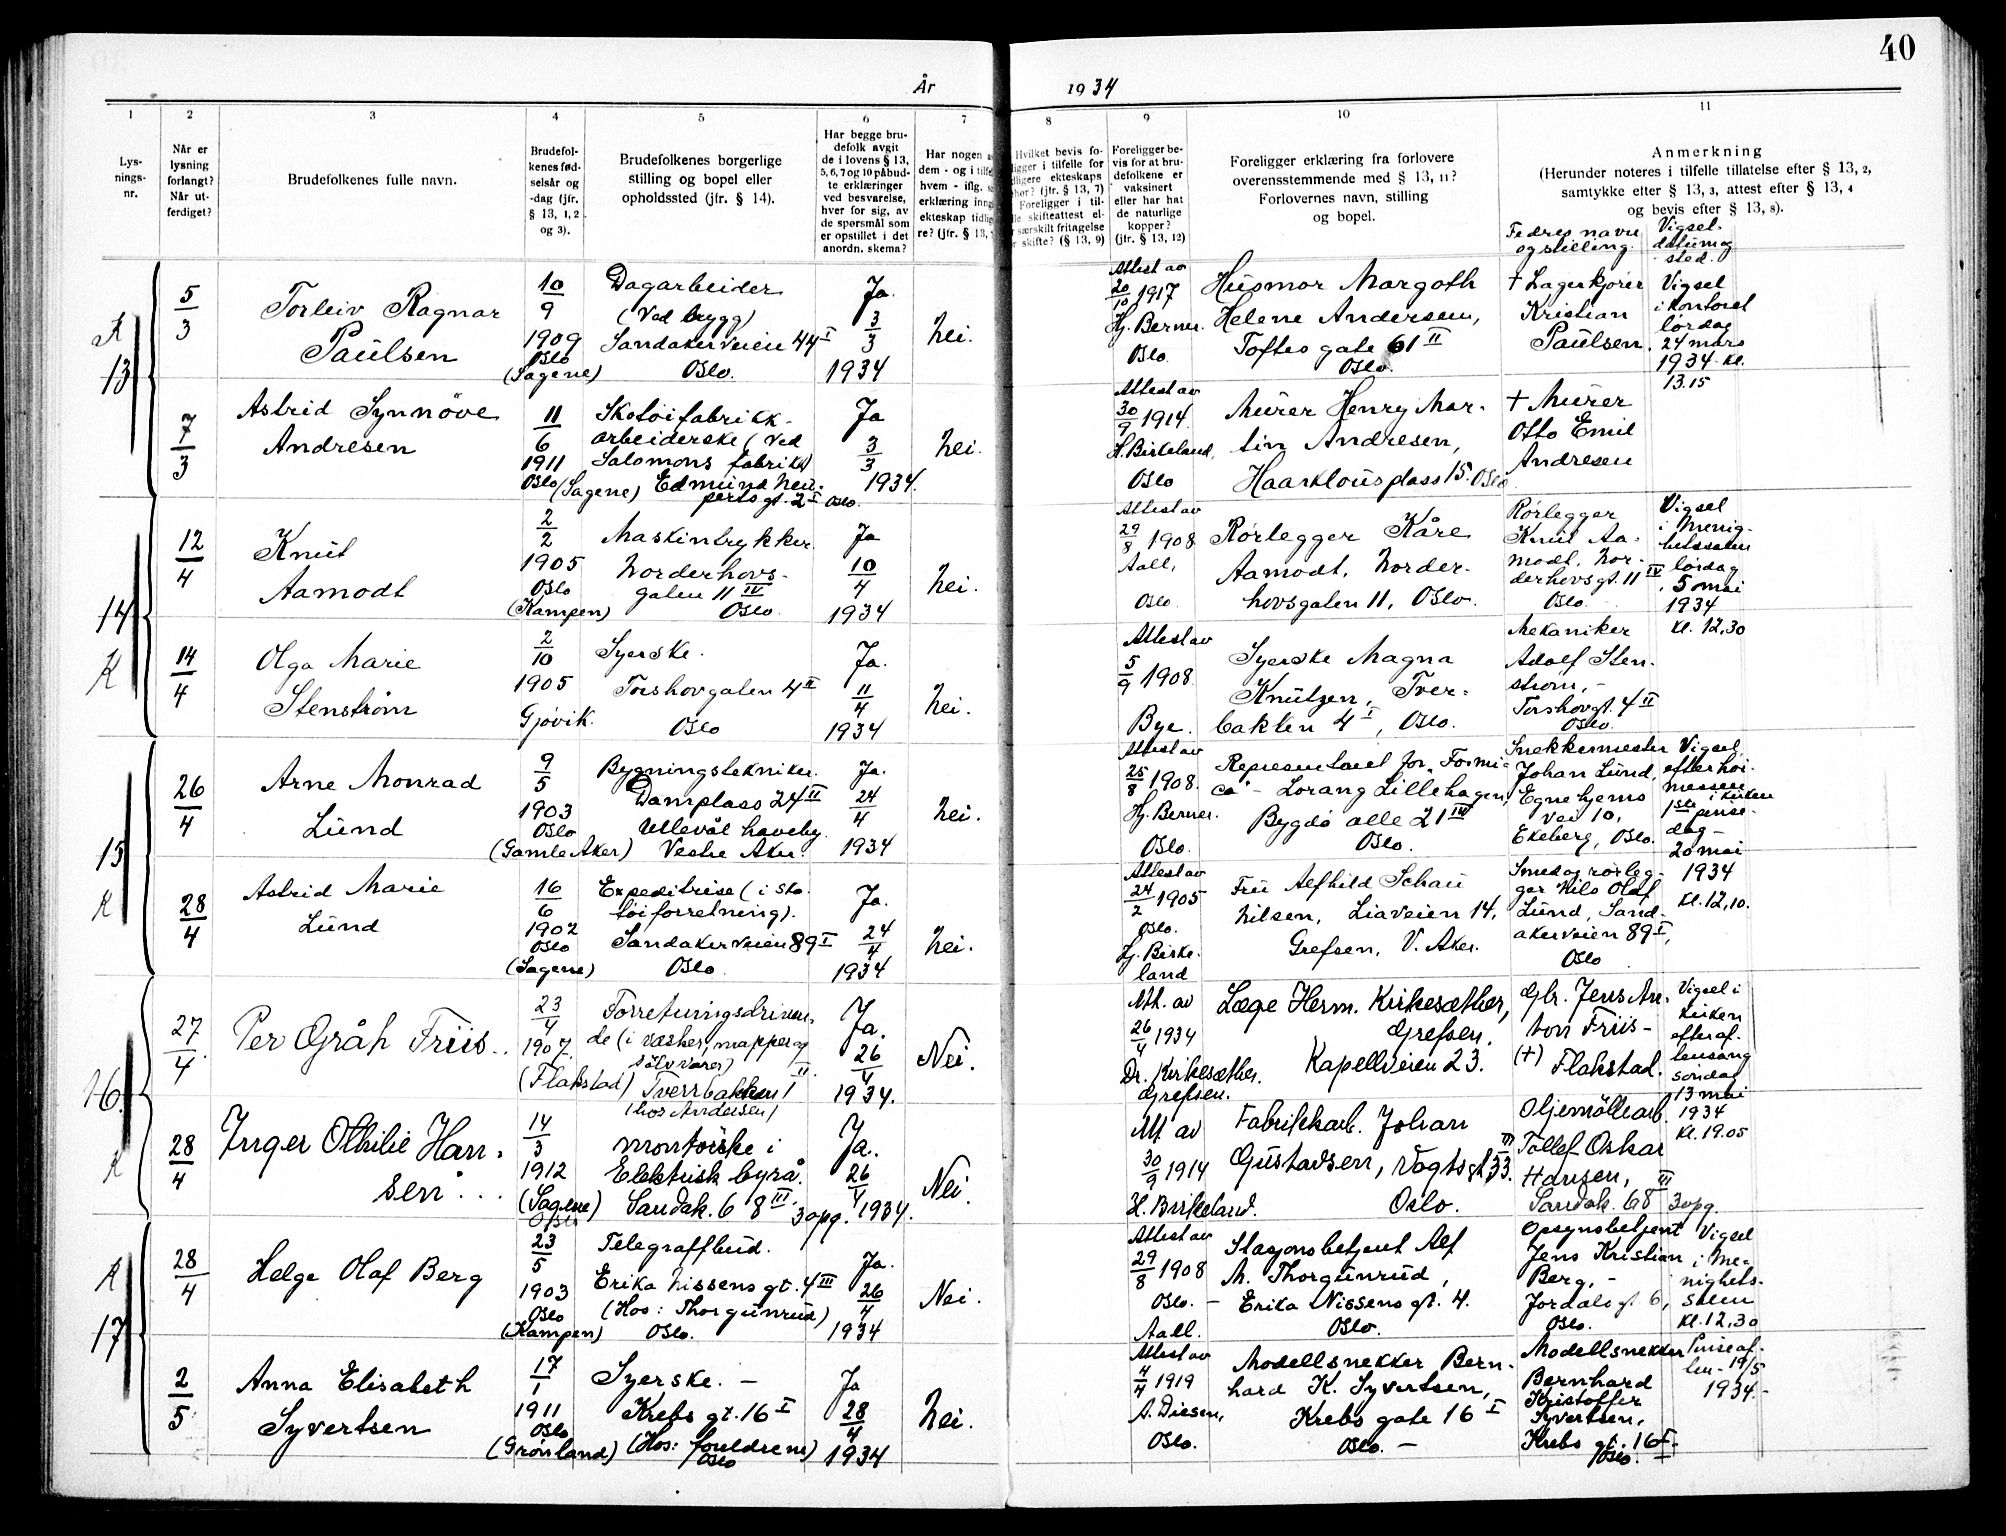 40
År 1934
1 2 3 4 5 6 7 8 9 10 11
Lys-
nings-
nr.
Når er
lysning
forlangt?
Når ut-
ferdiget?
Brudefolkenes fulle navn.
Brudefol-
kenes fød-
selsår og
-dag (jfr.
§ 13, 1, 2
og 3).
Brudefolkenes borgerlige
stilling og bopel eller
opholdssted (jfr. § 14).
Har begge bru-
defolk avgit
de i lovens § 13,
5, 6, 7 og 10 påbud-
te erklæringer
ved besvarelse,
hver for sig, av
de spørsmål som
er opstillet i det
anordn. skema?
Har nogen a
dem - og i tilfe
hvem - iflg.
erklæring inng
ekteskap tidlig
re? (jfr. § 13,
Hvilket bevis fo-
ligger i tilfelle for
dligere ekteskaps
hør? (jfr. § 13, 7)
Foreligger i til-
le skifteattest el-
særskilt fritagelse
skifte? (§ 13, 9)
Foreligger be-
vis for at bru-
defolkene er
vaksinert
eller har hat
de naturlige
kopper?
(jfr. § 13, 12)
Foreligger erklæring fra forlovere
overensstemmende med § 13, 11?
Forlovernes navn, stilling
og bopel.
Anmerkning
(Herunder noteres i tilfelle tillatelse efter § 13, 2,
samtykke efter § 13, 3, attest efter § 13, 4
og bevis efter § 13, 8).
Fedres navn
og stilling.
Vigsel-
datum og
sted.
K
13
5/3
Torleiv Ragnar
Paulsen
10/9
1909
Oslo
(Sagene)
Dagarbeider
(Ved brygg)
Sandakerveien 44 I
Oslo.
Ja.
3/3
1934
Nei.
Attest av
20/10 1917
Hj. Berner.
Oslo.
Husmor Margoth
Helene Andersen,
Toftes gate 61 II
Oslo.
† Lagerkjører
Kristian
Paulsen.
Vigsel
i kontoret
lørdag
24 mars
1934 kl.
13.15
7/3
Astrid Synnöve
Andresen
11/6
1911
Oslo (Sagene)
Skotøifabrikk-
arbeiderske (Ved
Salomons fabrikk)
Edmund Neu-
perts gt. 2 I Oslo.
Ja
3/3
1934.
Nei.
Attest av
30/9 1914
H. Birkeland,
Oslo
Murer Henry Mar-
tin Andresen,
Haarklousplass 15. Oslo
† Murer
Otto Emil
Andresen
14
K
12/4
Knut
Aamodt
2/2
1905
Oslo
(Kampen)
Maskintrykker.
Norderhovs-
gaten 11 IV
Oslo.
Ja
10/4
1934
Nei.
Attest av
29/8 1908
Aall,
Oslo.
Rørlegger Kåre
Aamodt, Norder-
hovsgaten 11, Oslo.
Rørlegger
Knut Aa-
modt, Nor-
derhovsgt. 11 IV
Oslo.
Vigsel
i Menig-
hetssalen
lørdag
5 mai
1934
kl. 12,30
14/4
Olga Marie
Stenström
2/10
1905
Gjøvik.
Syerske.
Torshovgaten 4 II
Oslo
Ja.
11/4
1934
Nei.
Attest av
5/9 1908
Bye.
Syerske Magna
Knutzen, Tver-
bakken 4 I, Oslo.
Mekaniker
Adolf Sten-
strøm, -
Torshovgt. 4 II
Oslo.
15
K
26/4
Arne Monrad
Lund
9/5
1903
Oslo
(Gamle Aker)
Bygningstekniker.
Damplass 24 II
Ullevål haveby.
Vestre Aker.
Ja.
24/4
1934
Nei.
Attest av
25/8 1908.
Hj. Berner.
Oslo.
Representant for "Formi-
ca" - Lorang Lillehagen,
Bygdø alle 21 III
Oslo.
Snekkermester
Johan Lund,
Egnehjems
vei 10,
Ekeberg, Oslo.
Vigsel
efter høi-
messen
1ste i kirken
pinse-
dag -
20 mai
1934
kl. 12,10.
28/4
Astrid Marie
Lund
16/6
1902
Oslo
(Sagene)
Expeditrise (i sko-
tøiforretning).
Sandakerveien 89 I
Oslo.
Ja.
24/4
1934
Nei.
Attest av
24/2 1905
Oslo.
Hj. Birke-
land
Fru Alfhild Schau
Nilsen, Liaveien 14,
Grefsen, V. Aker.
Smed og rørleg-
ger Nils Olaf
Lund, Sand-
akerveien 89 I,
Oslo
16.
K
27/4.
Per Gråh Friis..
23/4
1907.
(Flakstad)
Forretningsdriven-
de (i vesker, mapper og
sølvvarer)
Tverrbakken 1 II
(hos Andersen)
Ja.
26/4
1934.
Nei.
Att. av
26/4 1934
Dr. Kirkesæther.
Grefsen.
Læge Herm. Kirkesæther,
Grefsen.
Kapellveien 23.
Gbr. Jens An-
ton Friis -
(†) Flakstad.
Vigsel i
kirken
efter af-
tensang
søndag
13 mai
1934
Kl. 19.05
28/4
Inger Othilie Han-
sen...
14/3
1912
(Sagene)
Oslo
Montøiske i
Elektrisk byrå.
Sandak. 68 III. 3 opg.
Ja.
26/4
1934.
Nei.
Att. av
30/9 1914
H. Birkeland.
Fabrikkarb. Johan
Gustavsen, Vogtsgt. 53. III
Oslo.
Oljemøllearb.
Tollef Oskar
Hansen,
Sandak. 68 III 3 opg.
17
K
28/4
Helge Olaf Berg
23/5
1903
Oslo
(Kampen)
Telegrafbud.
Erika Nissens gt. 4 III
(Hos: Thorgunrud)
Oslo.
Ja.
26/4
1934
Nei.
Attest av
29/8 1908
Oslo. -
Aall.
Stasjonsbetjent Alf
M. Thorgunrud,
Erika Nissens gt. 4.
Oslo.
Opsynsbetjent
Jens Kristian
Berg, -
Jordals gt 6,
Oslo.
Vigsel
i Me-
nighets-
salen
kl. 12,30
Pinseaf-
ten - 19/5
1934. -
2/5
Anna Elisabeth
Syvertsen
17/1
1911
Oslo
(Grønland)
Syerske. -
Krebs gt. 16 I
(Hos: foreldrene)
Oslo
Ja
28/4
1934
Nei.
Attest av
4/4 1919
A. Diesen,
Oslo.
Modellsnekker Bern-
hard K. Syvertsen,
Krebs gate 16 I
Oslo. -
Modellsnekker
Bernhard
Kristoffer
Syvertsen,
Krebs gt. 16 I.
Oslo.